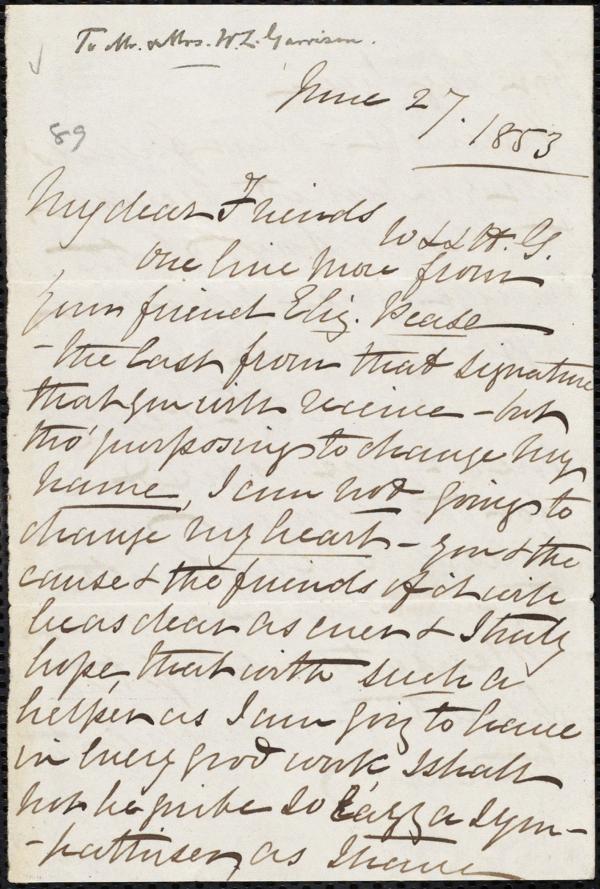 To Mr. & Mrs. W. L. Garrison.
89
June 27. 1853
My dear Friends
W L & H. G.
One line more from
your friend Eliz. Pease
- the last from that signature
that you will receive - but
tho' purposing to change my
name, I am not going to
change my heart - you & the
cause & the friends of it will
be as dear as ever & I truly
hope, that with such a
helper as I am going to have
in every good work I shall
not be quite so lazy a sym-
-pathiser, as I have